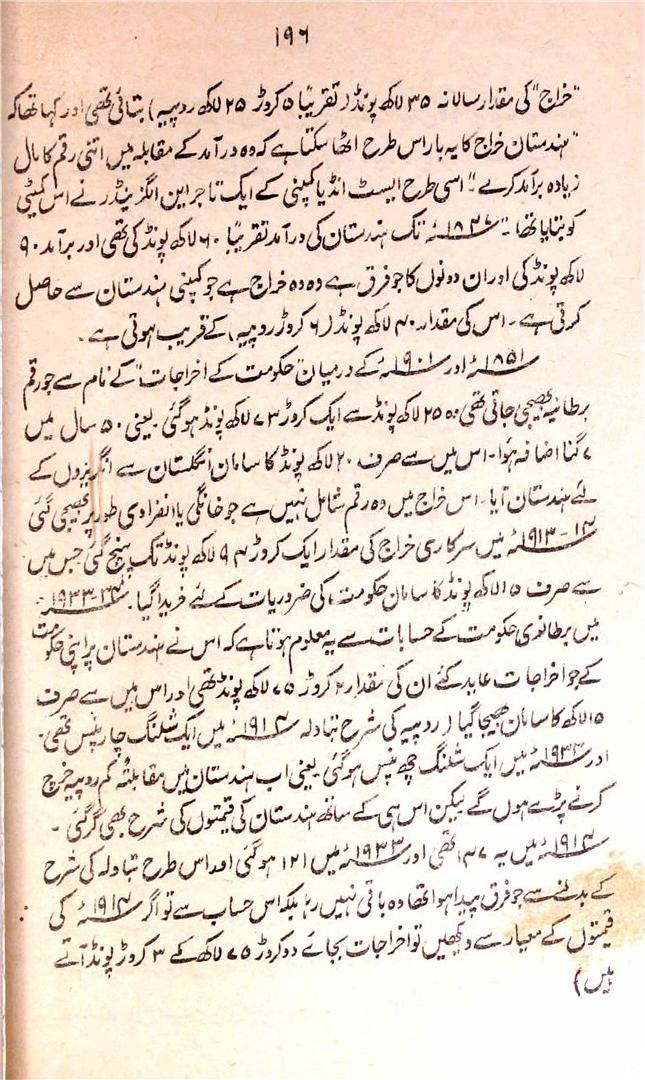 ۱۹۶
"خراج" کی مقدار سالانہ ۳۵ لاکھ پونڈ (تقریبًا ۵ کروڑ ۲۵ لاکھ روپیہ) بتائی تھی اور کہا تھا کہ
"ہندستان خراج کا یہ بار اس طرح اٹھا سکتا ہے کہ وہ درآمد کے مقابلہ میں اتنی رقم کا مال
زیادہ برآمد کرے"۔ اسی طرح ایسٹ انڈیا کمپنی کے ایک تاجر این الگزینڈر نے اس کمیٹی
کو بتایا تھا۔ "۱۸۳۷ء تک ہندستان کی درآمد تقریبًا ۶۰ لاکھ پونڈ کی تھی اور برآمد ۹۰
لاکھ پونڈ کی اور ان دونوں کا جو فرق ہے وہ وہ خراج ہے جو کمپنی ہندستان سے حاصل
کرتی ہے۔ اس کی مقدار ۴۰ لاکھ پونڈ (۶ کروڑ روپیہ) کے قریب ہوتی ہے۔
۱۸۵۱ء اور ۱۹۰۱ء کے درمیان "حکومت کے اخراجات" کے نام سے جو رقم
برطانیہ بھیجی جاتی تھی وہ ۲۵ لاکھ پونڈ سے ایک کروڑ ۷۳ لاکھ پونڈ ہو گئی۔ یعنی ۵۰ سال میں
۷ گنا اضافہ ہوا۔ اس میں سے صرف ۲۰ لاکھ پونڈ کا سامان انگلستان سے انگریزوں کے
لئے ہندستان آیا۔ اس خراج میں وہ رقم شامل نہیں ہے جو خانگی یا انفرادی طور پر بھیجی گئی
۱۴-۱۹۱۳ء میں سرکاری خراج کی مقدار ایک کروڑ ۹۴ لاکھ پونڈ تک پہنچ گئی جس میں
سے صرف ۱۵ لاکھ پونڈ کا سامان حکومت کی ضروریات کے لئے خریدا گیا۔ ۳۴-۱۹۳۳ء
میں برطانوی حکومت کے حسابات سے یہ معلوم ہوتا ہے کہ اس نے ہندستان پر اپنی حکومت
کے جو اخراجات عاید کئے ان کی مقدار ۲ کروڑ ۷۵ لاکھ پونڈ تھی اور اس میں سے صرف
۱۵ لاکھ کا سامان بھیجا گیا (روپیہ کی شرح تبادلہ ۱۹۱۴ء میں ایک شلنگ چار پنس تھی۔
اور ۱۹۳۳ء میں ایک شلنگ چھ پنس ہو گئی۔ یعنی اب ہندستان میں مقابلتًہ کم روپیہ خرچ
کرنے پڑے ہوں گے لیکن اس ہی کے ساتھ ہندستان کی قیمتوں کی شرح بھی گر گئی۔
۱۹۱۴ء میں یہ ۱۴۷ تھی اور ۱۹۳۳ء میں ۱۲۱ ہو گئی اور اس طرح تبادلہ کی شرح
کے بدلنے سے جو فرق پیدا ہوا تھا وہ باقی نہیں رہا بلکہ اس حساب سے تو اگر ۱۹۱۴ء کی
قیمتوں کے معیار سے دیکھیں تو اخراجات بجائے دو کروڑ ۷۵ لاکھ کے ۳ کروڑ پونڈ آتے
ہیں)